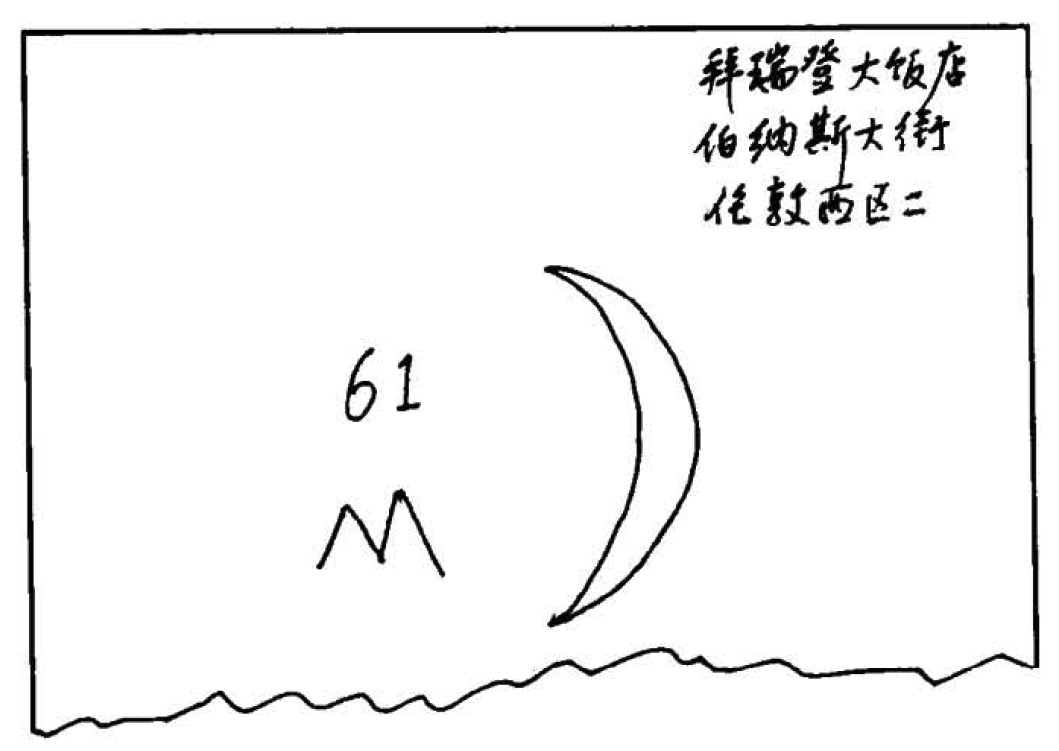 拜瑞登大饭店
伯纳斯大街
伦敦西区二
61
M